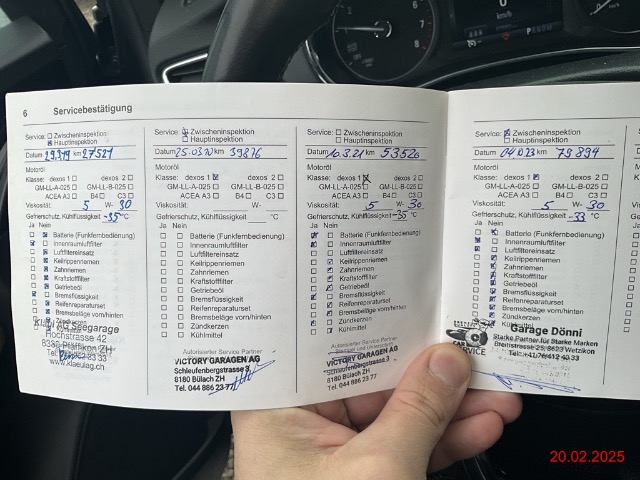 6 Servicebestätigung
Service: Zwischeninspektion
Hauptinspektion
Datum km 27521
Motoröl
Klasse: dexos 1 dexos 2
GM-LL-A-025 GM-LL-B-025
ACEA A3 B4 C3
Viskosität: 5 W- 30
Gefrierschutz, Kühlflüssigkeit -35 °C
Ja Nein
Batterie (Funkfernbedienung)
Innenraumluftfilter
Luftfiltereinsatz
Keilrippenriemen
Zahnriemen
Kraftstofffilter
Getriebeöl
Bremsflüssigkeit
Reifenreparaturset
Bremsbeläge vorn/hinten
Zündkerzen
AG Seegarage
Hochstrasse 42
Pfäffikon ZH
www.klaeuiag.ch
Service: Zwischeninspektion
Hauptinspektion
Datum 25.03.20 km 39876
Motoröl
Klasse: dexos 1 dexos 2
GM-LL-A-025 GM-LL-B-025
ACEA A3 B4 C3
Viskosität: W-
Gefrierschutz, Kühlflüssigkeit °C
Ja Nein
Batterie (Funkfernbedienung)
Innenraumluftfilter
Luftfiltereinsatz
Keilrippenriemen
Zahnriemen
Kraftstofffilter
Getriebeöl
Bremsflüssigkeit
Reifenreparaturset
Bremsbeläge vorn/hinten
Zündkerzen
Kühlmittel
Autorisierter Service Partner
VICTORY GARAGEN AG
Schleufenbergstrasse 3
8180 Bülach ZH
Tel. 044 886 23 77
Service: Zwischeninspektion
Hauptinspektion
Datum 10.3.21 km 53520
Motoröl
Klasse: dexos 1 dexos 2
GM-LL-A-025 GM-LL-B-025
ACEA A3 B4 C3
Viskosität: 5 W- 30
Gefrierschutz, Kühlflüssigkeit -35 °C
Ja Nein
Batterie (Funkfernbedienung)
Innenraumluftfilter
Luftfiltereinsatz
Keilrippenriemen
Zahnriemen
Kraftstofffilter
Getriebeöl
Bremsflüssigkeit
Reifenreparaturset
Bremsbeläge vorn/hinten
Zündkerzen
Kühlmittel
Autorisierter Service Partner
VICTORY GARAGEN AG
Schleufenbergstrasse 3
8180 Bülach ZH
Tel. 044 886 23 77
Service: Zwischeninspektion
Hauptinspektion
Datum km 79894
Motoröl
Klasse: dexos 1 dexos 2
GM-LL-A-025 GM-LL-B-025
ACEA A3 B4 C3
Viskosität: 5 W- 30
Gefrierschutz, Kühlflüssigkeit -33 °C
Ja Nein
Batterie (Funkfernbedienung)
Innenraumluftfilter
Luftfiltereinsatz
Keilrippenriemen
Zahnriemen
Kraftstofffilter
Getriebeöl
Bremsflüssigkeit
Reifenreparaturset
Bremsbeläge vorn/hinten
Zündkerzen
Kühlmittel
Garage Dönni
Starke Partner für Starke Marken
8623 Wetzikon
CAR
SERVICE
20.02.2025
0
km/h